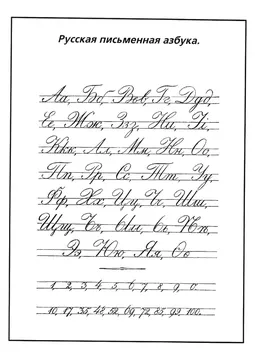 Русская письменная азбука.
Аа, Бб, Ввв, Гг, Дуд,
Ее, Жж, Ззз, Ии, Іі,
Ккк, Лл, Мм, Нн, Оо,
Пп, Рр, Сс, Тт, Уу,
Фф, Хх, Цц, Чч, Шш,
Щщ, Ъъ, Ыы, Ьь, Ѣѣ,
Ээ, Юю, Яя, Ѳѳ
1, 2, 3, 4, 5, 6, 7, 8, 9, 0.
10, 17, 35, 48, 52, 69, 72, 85, 99, 100.